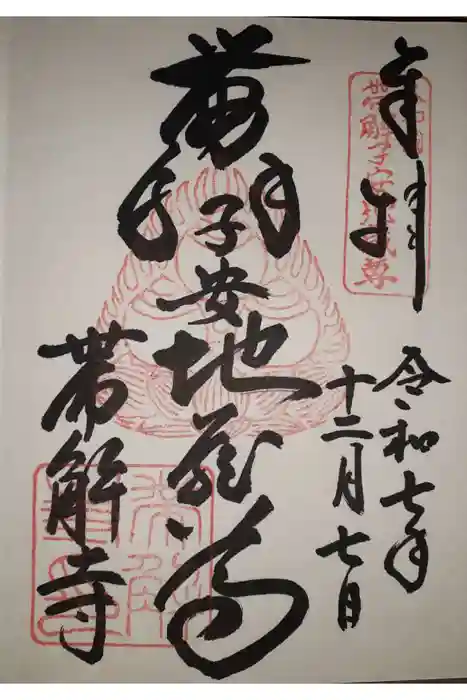 奉拝
令和七年
十二月七日
帯解
子安地蔵尊
帯解寺
帯解子安地蔵尊